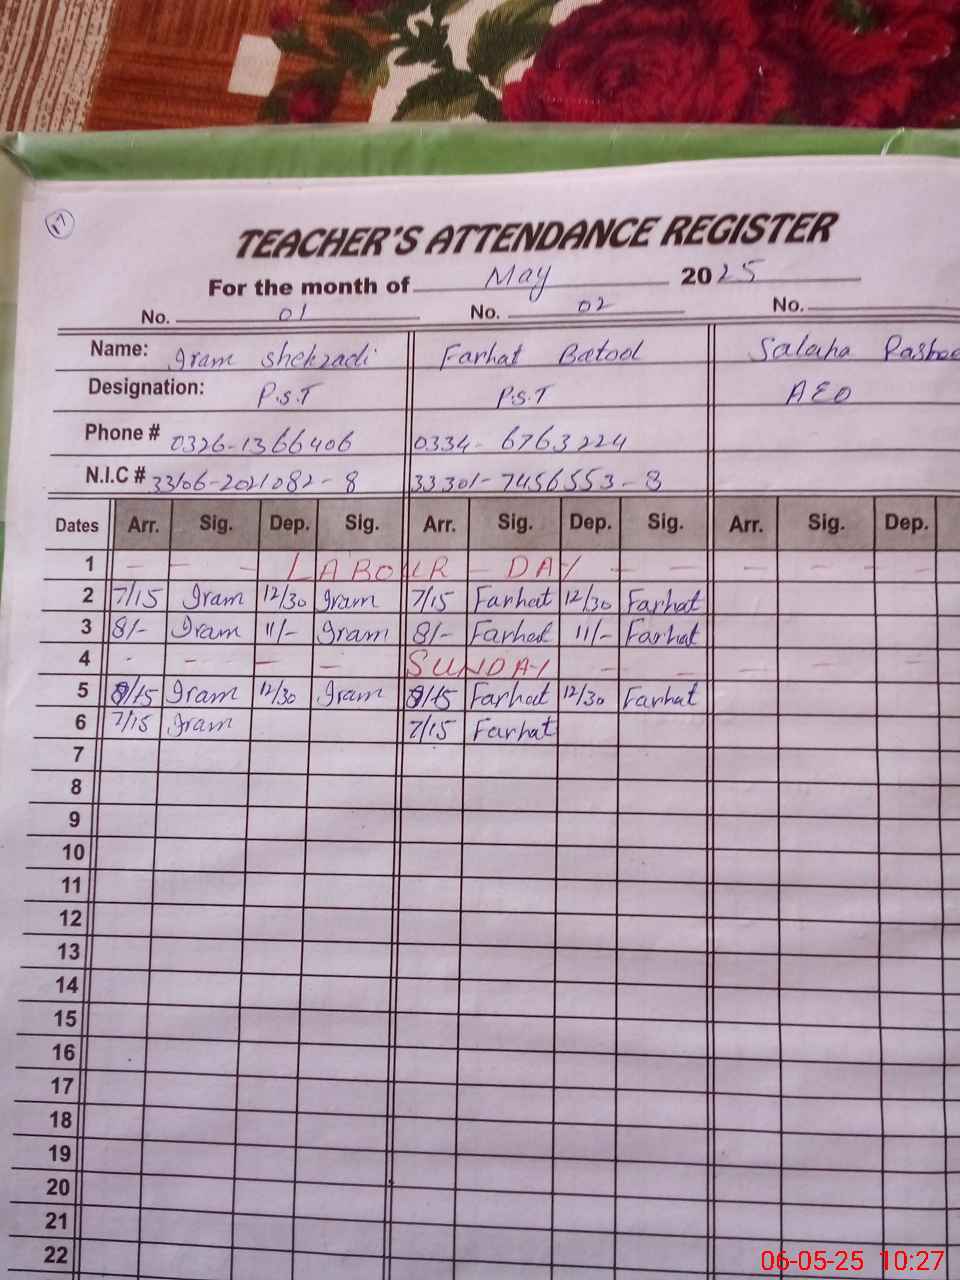 17
TEACHER'S ATTENDANCE REGISTER
For the month of May 2025
No. 01 No. 02 No.
Name: Iram Shehzadi Farhat Batool Salaha
Designation: P.S.T P.S.T AEO
Phone # 0326-1366406 0334-6763224
N.I.C # 33106-2021082-8 33301-7456553-8
Dates Arr. Sig. Dep. Sig. Arr. Sig. Dep. Sig. Arr. Sig. Dep.
1 - - - LABOUR - DAY - - - - - -
2 7/15 Iram 12/30 Iram 7/15 Farhat 12/30 Farhat
3 8/- Iram 11/- Iram 8/- Farhat 11/- Farhat
4 - - - - SUNDAY - - - - - -
5 /15 Iram 12/30 Iram /15 Farhat 12/30 Farhat
6 7/15 Iram 7/15 Farhat
7
8
9
10
11
12
13
14
15
16
17
18
19
20
21
22
06-05-25 10:27